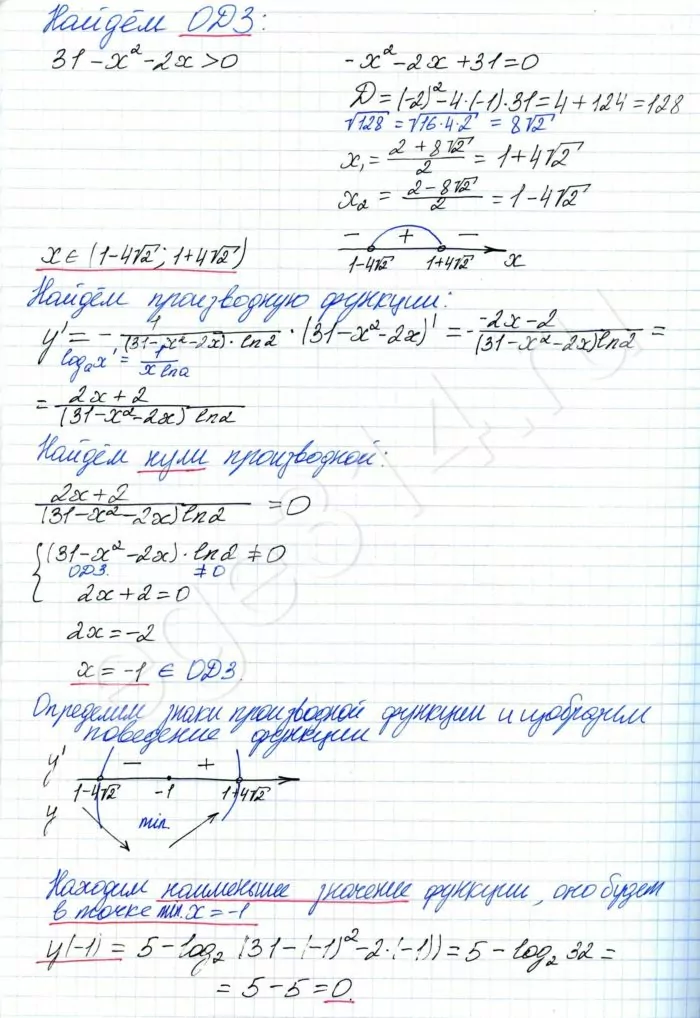 Найдём ОДЗ:
31-x²-2x>0
-x²-2x+31=0
D=(-2)²-4·(-1)·31=4+124=128
√128=√16·4·2=8√2
x₁=(2+8√2)/2=1+4√2
x₂=(2-8√2)/2=1-4√2
- + -
1-4√2 1+4√2 x
x∈(1-4√2; 1+4√2)
Найдём производную функции:
y'=-1/((31-x²-2x)·ln2)·(31-x²-2x)'=-(-2x-2)/((31-x²-2x)ln2)=
logₐx'=1/(x lna)
=(2x+2)/((31-x²-2x) ln2)
Найдём нули производной:
(2x+2)/((31-x²-2x)ln2)=0
{(31-x²-2x)·ln2≠0
ОДЗ. ≠0
2x+2=0
2x=-2
x=-1 ∈ ОДЗ.
Определим знаки производной функции и изобразим
поведение функции
y' - +
1-4√2 -1 1+4√2
y min
Находим наименьшее значение функции, оно будет
в точке min x=-1
y(-1)=5-log₂(31-(-1)²-2·(-1))=5-log₂32=
=5-5=0.
ege314.ru